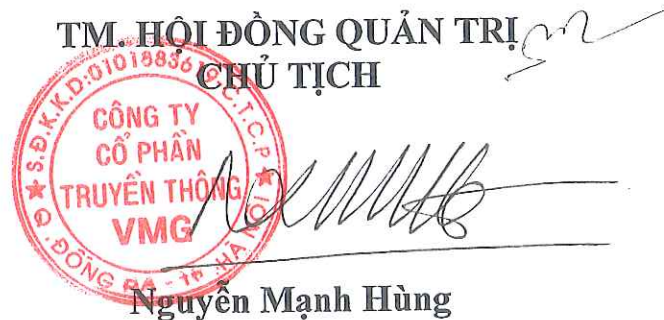 TM. HỘI ĐỒNG QUẢN TRỊ
CHỦ TỊCH
S.Đ.K.K.D:0101883619-C.T.C.P
CÔNG TY
CỔ PHẦN
TRUYỀN THÔNG
VMG
Q. ĐỐNG ĐA - TP. HÀ NỘI
Nguyễn Mạnh Hùng